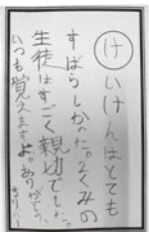 けいけんはとても
すばらしかった。2くみの
生徒はすごく親切でした。
いつも覚えますよ。ありがとう。